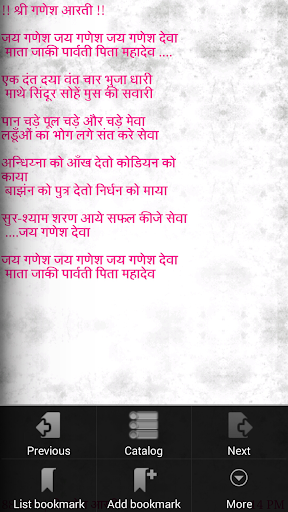 !! श्री गणेश आरती !!
जय गणेश जय गणेश जय गणेश देवा
माता जाकी पार्वती पिता महादेव ....
एक दंत दया वंत चार भूजा धारी
माथे सिंदूर सोहें मुस की सवारी
पान चड़े पूल चड़े और चड़े मेवा
लडूँओं का भोग लगे संत करे सेवा
अन्धिय्ना को आँख देतो कोडियन को
काया
बाझंन को पुत्र देतो निर्धन को माया
सुर-श्याम शरण आये सफल कीजे सेवा
....जय गणेश देवा
जय गणेश जय गणेश जय गणेश देवा
माता जाकी पार्वती पिता महादेव
Previous
Catalog
Next
List bookmark
Add bookmark
More